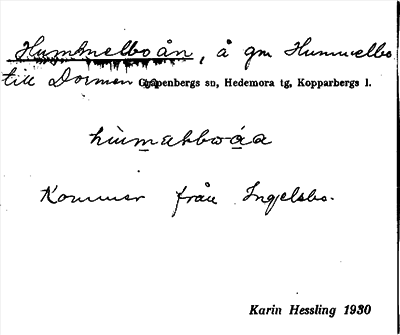 Hummelboån, å gm Hummelbo
till Dormen Garpenbergs sn, Hedemora tg, Kopparbergs l.
Kommer från Ingelsbo.
Karin Hessling 1930